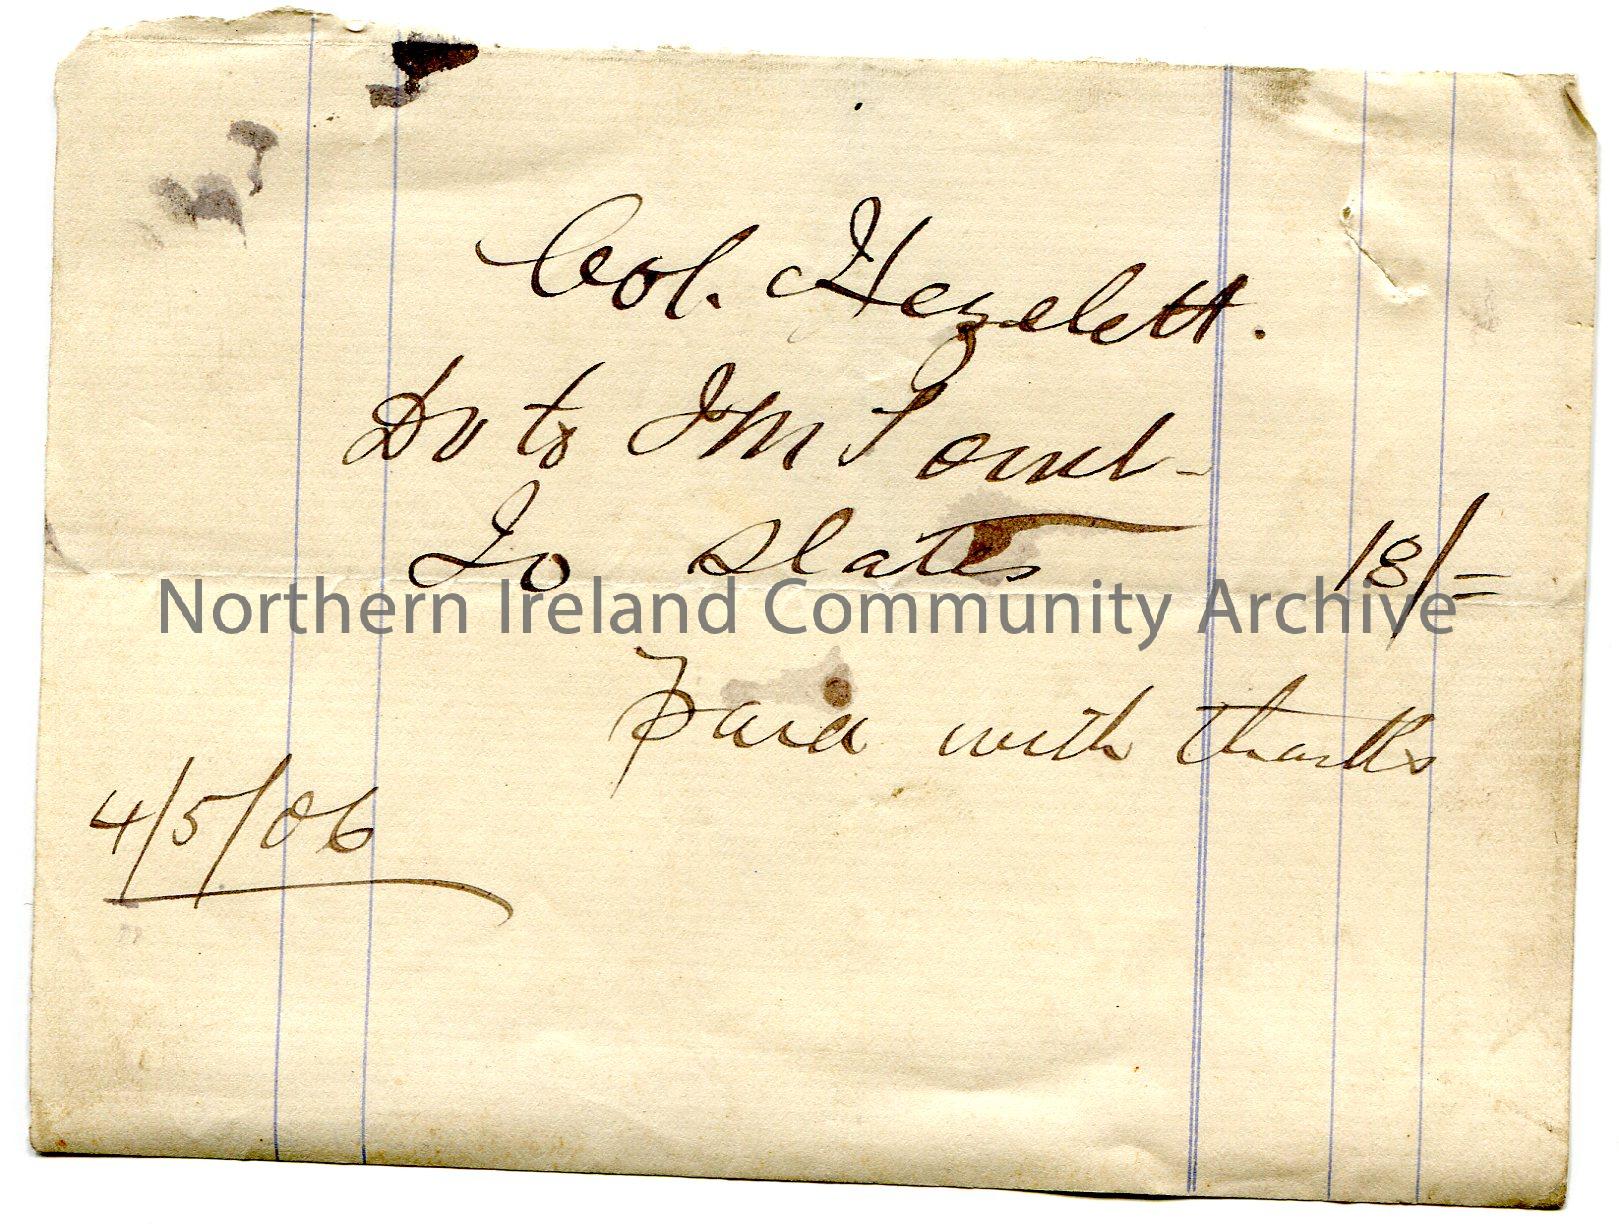 Col. Hezelett.
Dr to J M
To Slates 18/=
Northern Ireland Community Archive
Paid with thanks
4/5/06